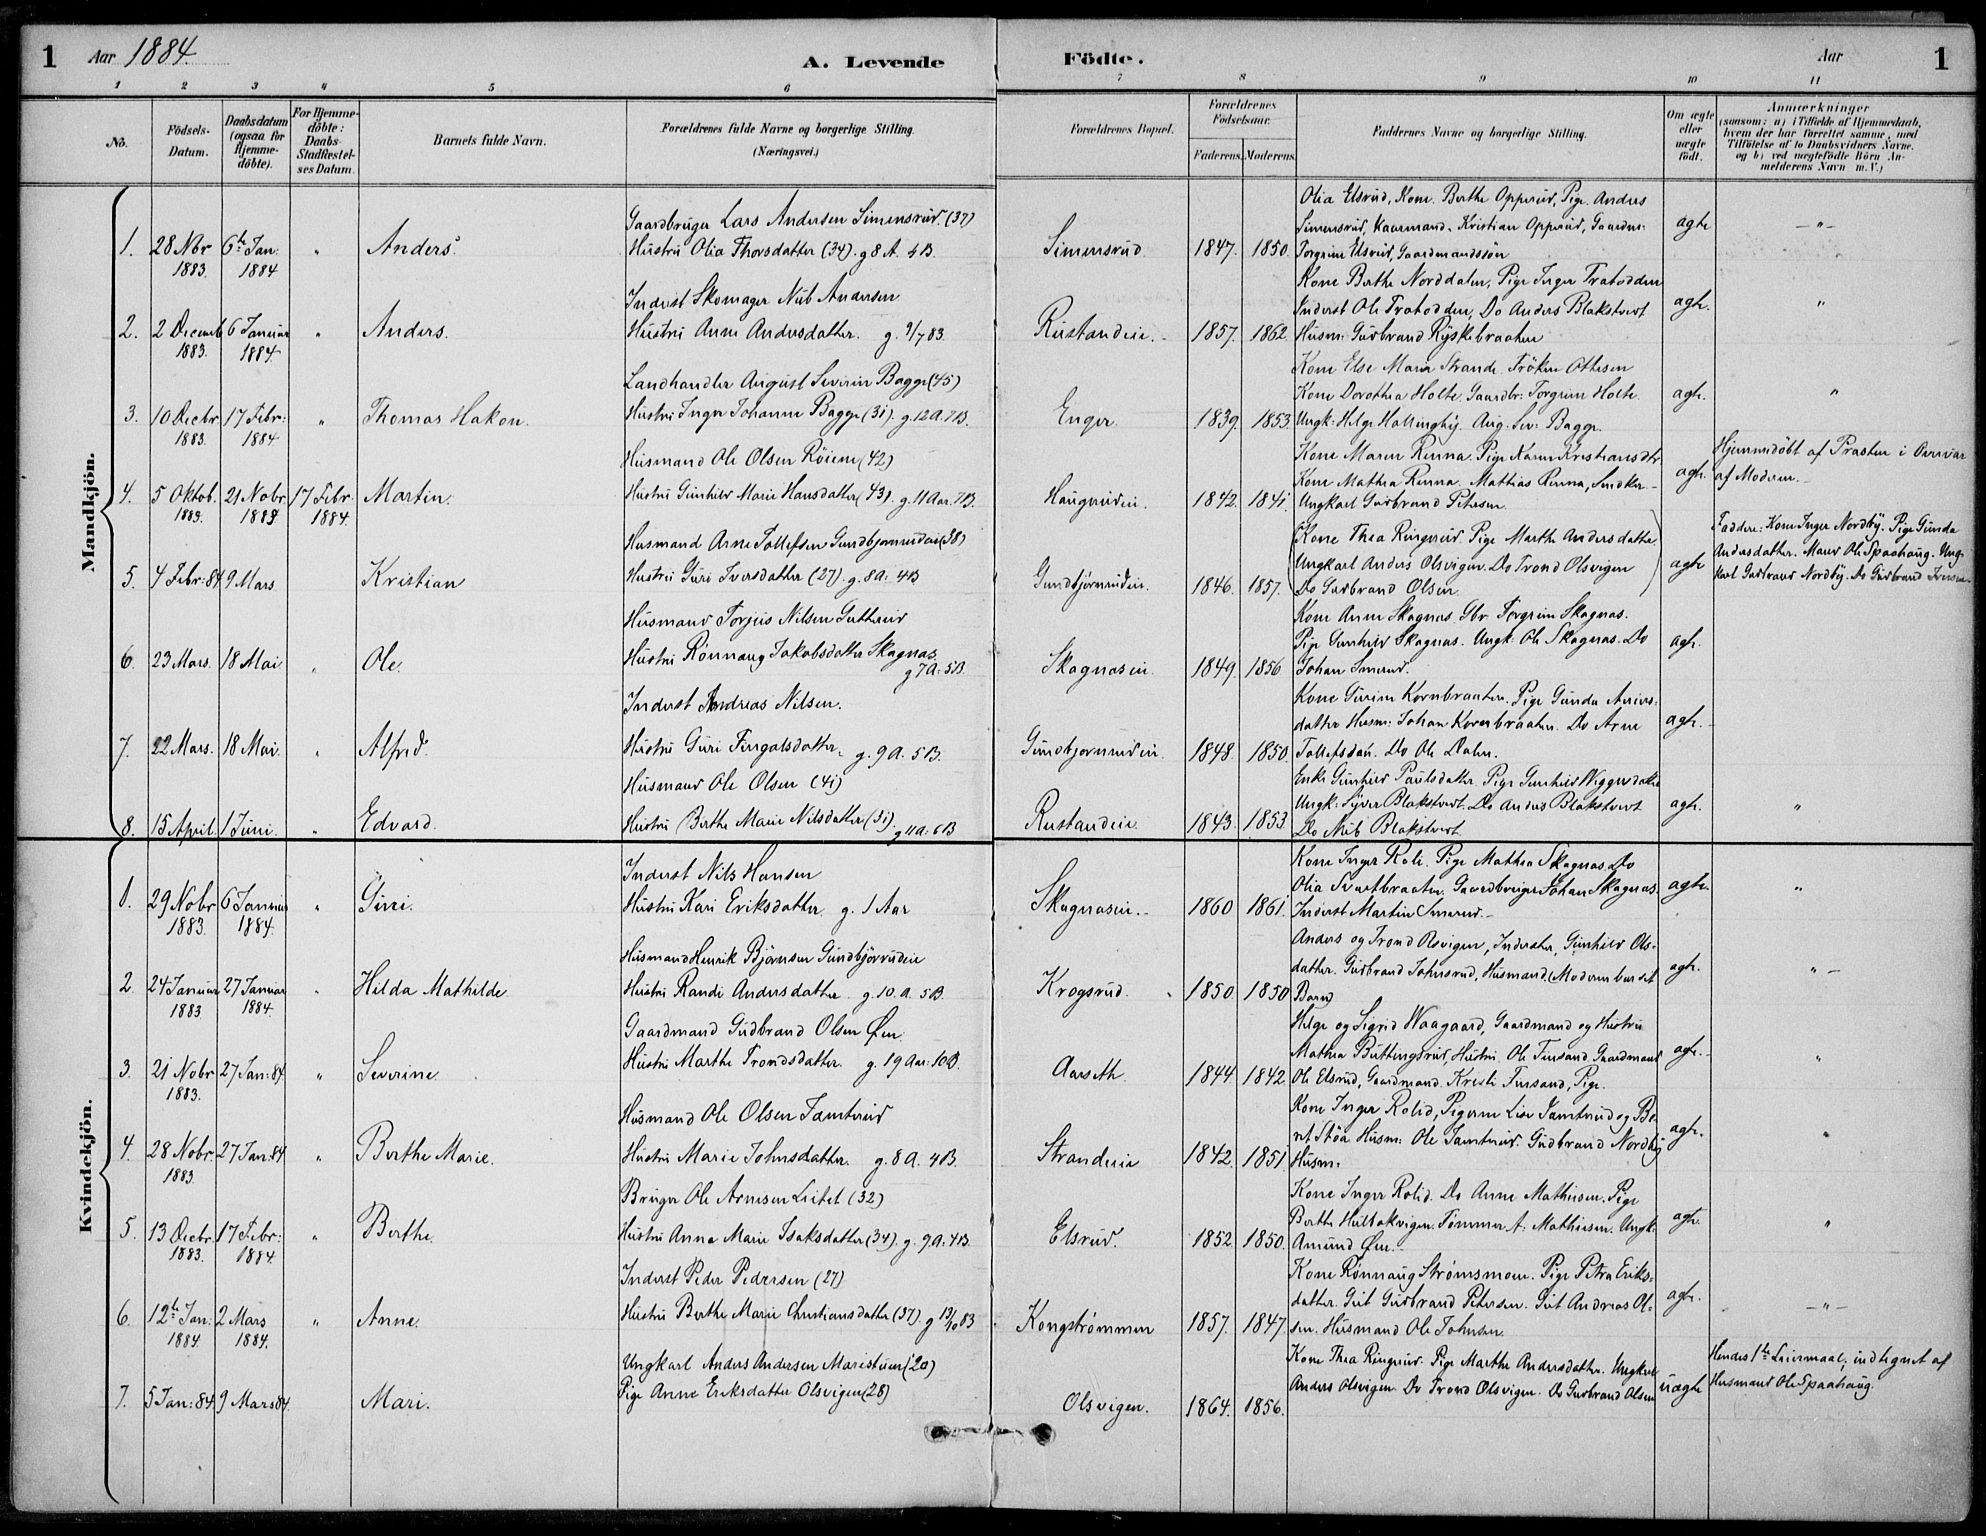 1 Aar 1884. A. Levende Födte. Aar 1
1 2 3 4 5 6 7 8 9 10 11
No.
Födsels-
Datum.
Daabsdatum
(ogsaa for
Hjemme-
döbte).
For Hjemme-
döbte:
Daabs-
Stadfæstel-
ses Datum.
Barnets fulde Navn.
Forældrenes fulde Navne og borgerlige Stilling.
(Næringsvei.)
Forældrenes Bopæl.
Forældrenes
Födselsaar.
Faderens. Moderens.
Faddernes Navne og borgerlige Stilling.
Om ægte
eller
uægte
födt.
Anmærkninger
(saasom: a) i Tilfælde af Hjemmedaab,
hvem der har forrettet samme, med
Tilföielse af to Daabsvidners Navne.
og b) ved uægtefödte Börn An-
melderens Navn m.V.)
Mandkjön.
Gaardbruger Lars Andersen Simensrud (37)
1. 28 Nbr 6te Jan: " Anders. Hustru Olia Thorsdatter (34). g 8 A. 4B.
1883. 1884
Simensrud 1847. 1850.
Olia Elsrud, Kone. Berthe Opperud, Pige. Anders
Simensrud, Kaarmand. Kristian Opperud, Gaardm:
Torgrim Elsrud, Gaardmandssön
ægte —"—
Inderst Skomager Nub Andersen
2. 2 Decemb 6 Januar " Anders. Hustru Anne Andersdatter. g. 9/7 83.
1883. 1884.
Rustandeie. 1857. 1862.
Kone Berthe Norddalen, Pige Inger Fratodden
Inderst Ole Fratodden, Do Anders Blakstvert
Husm: Gudbrand Ryskebraaten
ægte. "
Landhandler August Severin Bagge (45)
3. 10 Decbr 17 Febr: " Thomas Hakon. Hustru Inger Johanne Bagge (31). g. 12 A. 7B.
1883. 1884
Enger. 1839. 1853
Kone Else Marie Strande. Fröken Ottesen
Kone Dorothea Holte. Gaardbr: Torgrim Holte.
Ungk: Helge Hollinghög. Aug. Sev: Bagge.
ægte. "
Husmand Ole Olsen Röiene (42)
4. 5 Oktob. 21 Nobr 17 Febr. Martin. Hustru Gunhild Marie Hansdatter (43). g. 11 Aar. 7B.
1883. 1883 1884.
Haugerudeie. 1842. 1841.
Kone Maren Renna. Pige Karen Kristiansdtr
Kone Mathea Renna. Mathias Renna, Snedker –
Ungkarl Gudbrand Petersen
ægte.
Hjemmedöbt af Præsten i Nærvær
af Moderen.
Husmand Arne Tollefsen Gundbjornrudeie (38)
5. 4 Febr: 84. 9 Mars Kristian Hustru Guri Iversdatter (27). g. 8 A: 4B
Gundbjörnrudeie. 1846. 1857.
Kone Thea Ringerud. Pige Marthe Andersdatter.
Ungkarl Anders Olsvigen. Do Trond Olsvigen
Do Gudbrand Olsen.
ægte
Faddere: Kone Inger Nordby. Pige Gunda
Andersdatter. Maur Ole Spaahaug. Ung-
karl Gudbrand Nordby. Do Gudbrand Iversen
Husmand Torgus Nilsen Gutterud
6. 23 Mars. 18 Mai " Ole. Hustru Rönnaug Jakobsdatter Skagnæs.
g 7 A: 5B.
Skagnæseie. 1849. 1856
Kone Anne Skagnæs. Gbr Torgrim Skagnæs.
Pige Gunhild Skagnæs. Ungk: Ole Skagnæs. Do
Johan Smerud.
ægte.
Inderst Andreas Nilsen.
7. 22 Mars. 18 Mai. " Alfred. Hustru Guri Fingalsdatter. g. 9 A. 5B.
Gundbjornrudeie. 1848. 1850.
Kone Gurine Kornbraaten. Pige Gunda
datter Husm: Johan Kornbraaten. Do Arne
Tollefsdan. Do Ole Dalen.
ægte.
Husmand Ole Olsen (41)
8. 15 April. 1 Juni. " Edvard. Hustru Berthe Marie Nilsdatter (31). g 11 A: 6B
Rustandeie. 1843. 1853.
Enke Gunhild Paulsdatter. Pige Gunhild Wiggersdatter
Ungk: Syver Blakstvert. Do Anders Blakstvert
Do Nub Blakstvert.
ægte. "
Kvindekjön.
Inderst Nils Hansen
1. 29 Nobr 6 Januar " Guri. Hustru Kari Eriksdatter. g. 1 Aar
1883. 1884.
Skagnæseie. 1860 1861.
Kone Inger Roli. Pige Mathea Skagnæs. Do
Olia Svartbraaten. Gaardbruger Johan Skagnæs.
Inderst Martin Smerud. –
ægte. "
Husmand Henrik Björnsen Gundbjörrudeie
2. 24 Januar 27 Januar " Hilda Mathilde Hustru Randi Andersdatter. g. 10. A. 5B.
1883 1884.
Krogsrud. 1850 1850
Anders og Trond Olsvigen, Inderster, Gunhild Ols-
datter. Gudbrand Johnsrud, Husmand. Moderen bar sit
Barn
ægte. " –
Gaardmand Gudbrand Olsen Øen
3. 21 Nobr 27 Jan: 84 " Severine. Hustru Marthe Trondsdatter. g. 19 Aar: 10B.
1883.
Aarseth. 1844. 1842.
Helge og Sigrid Waagaard, Gaardmand og Hustru
Mathea Buttingsrud, Hustru. Ole Tursand. Gaardmand
Ole Elsrud, Gaardmand. Kresti Tursand, Pige.
ægte. "
Husmand Ole Olsen Tamterud
4. 28 Nobr. 27 Jan: 84 " Berthe Marie. Hustru Marie Johnsdatter. g. 8 A. 4B.
1883.
Strandeie 1842. 1851.
Kone Inger Rolid, Pigerne Lise Tamterud og Be-
ret Stöa Husm: Ole Tamterud. Gudbrand Nordby
Husm:
ægte. "
Bruger Ole Arnesen Lietet (32)
5. 13 Decbr 17 Febr: " Berthe. Hustru Anne Marie Isaksdatter (34). g. 9 A: 4B
1883. 1884.
Elsrud. 1852. 1850.
Kone Inger Rolid. Do Anne Mathisen. Pige
Berthe Hulbakvigen. Tömmer A: Mathiesen. Ungk:
Amund Øen. –
ægte. "
Inderst Peder Pedersen (27)
6. 12te Jan: 2 Mars " Anne. Hustru Berthe Marie Christiansdatter (37). g 13/10 83
1884. 1884.
Kongströmmen 1857. 1847.
Kone Rönnaug Strömsmoen. Pige Petra Eriks-
datter. Gut Gudbrand Petersen. Gut Andreas Ol-
sen. Husmand Ole Johnsen.
ægte. —"—
Ungkarl Anders Andersen Maristuen (20)
7. 5 Jan: 84. 9 Mars 84. Mari. Pige Anne Eriksdatter Olsvigen (28)
Olsvigen. 1864. 1856.
Kone Thea Ringerud. Pige Marthe Andersdatter. Ungkarl
Anders Olsvigen. Do Trond Olsvigen. Do Gudbrand Olsen
uægte
Hendes 1te Leiermaal, indtegnet af
Husmand Ole Spaahaug.